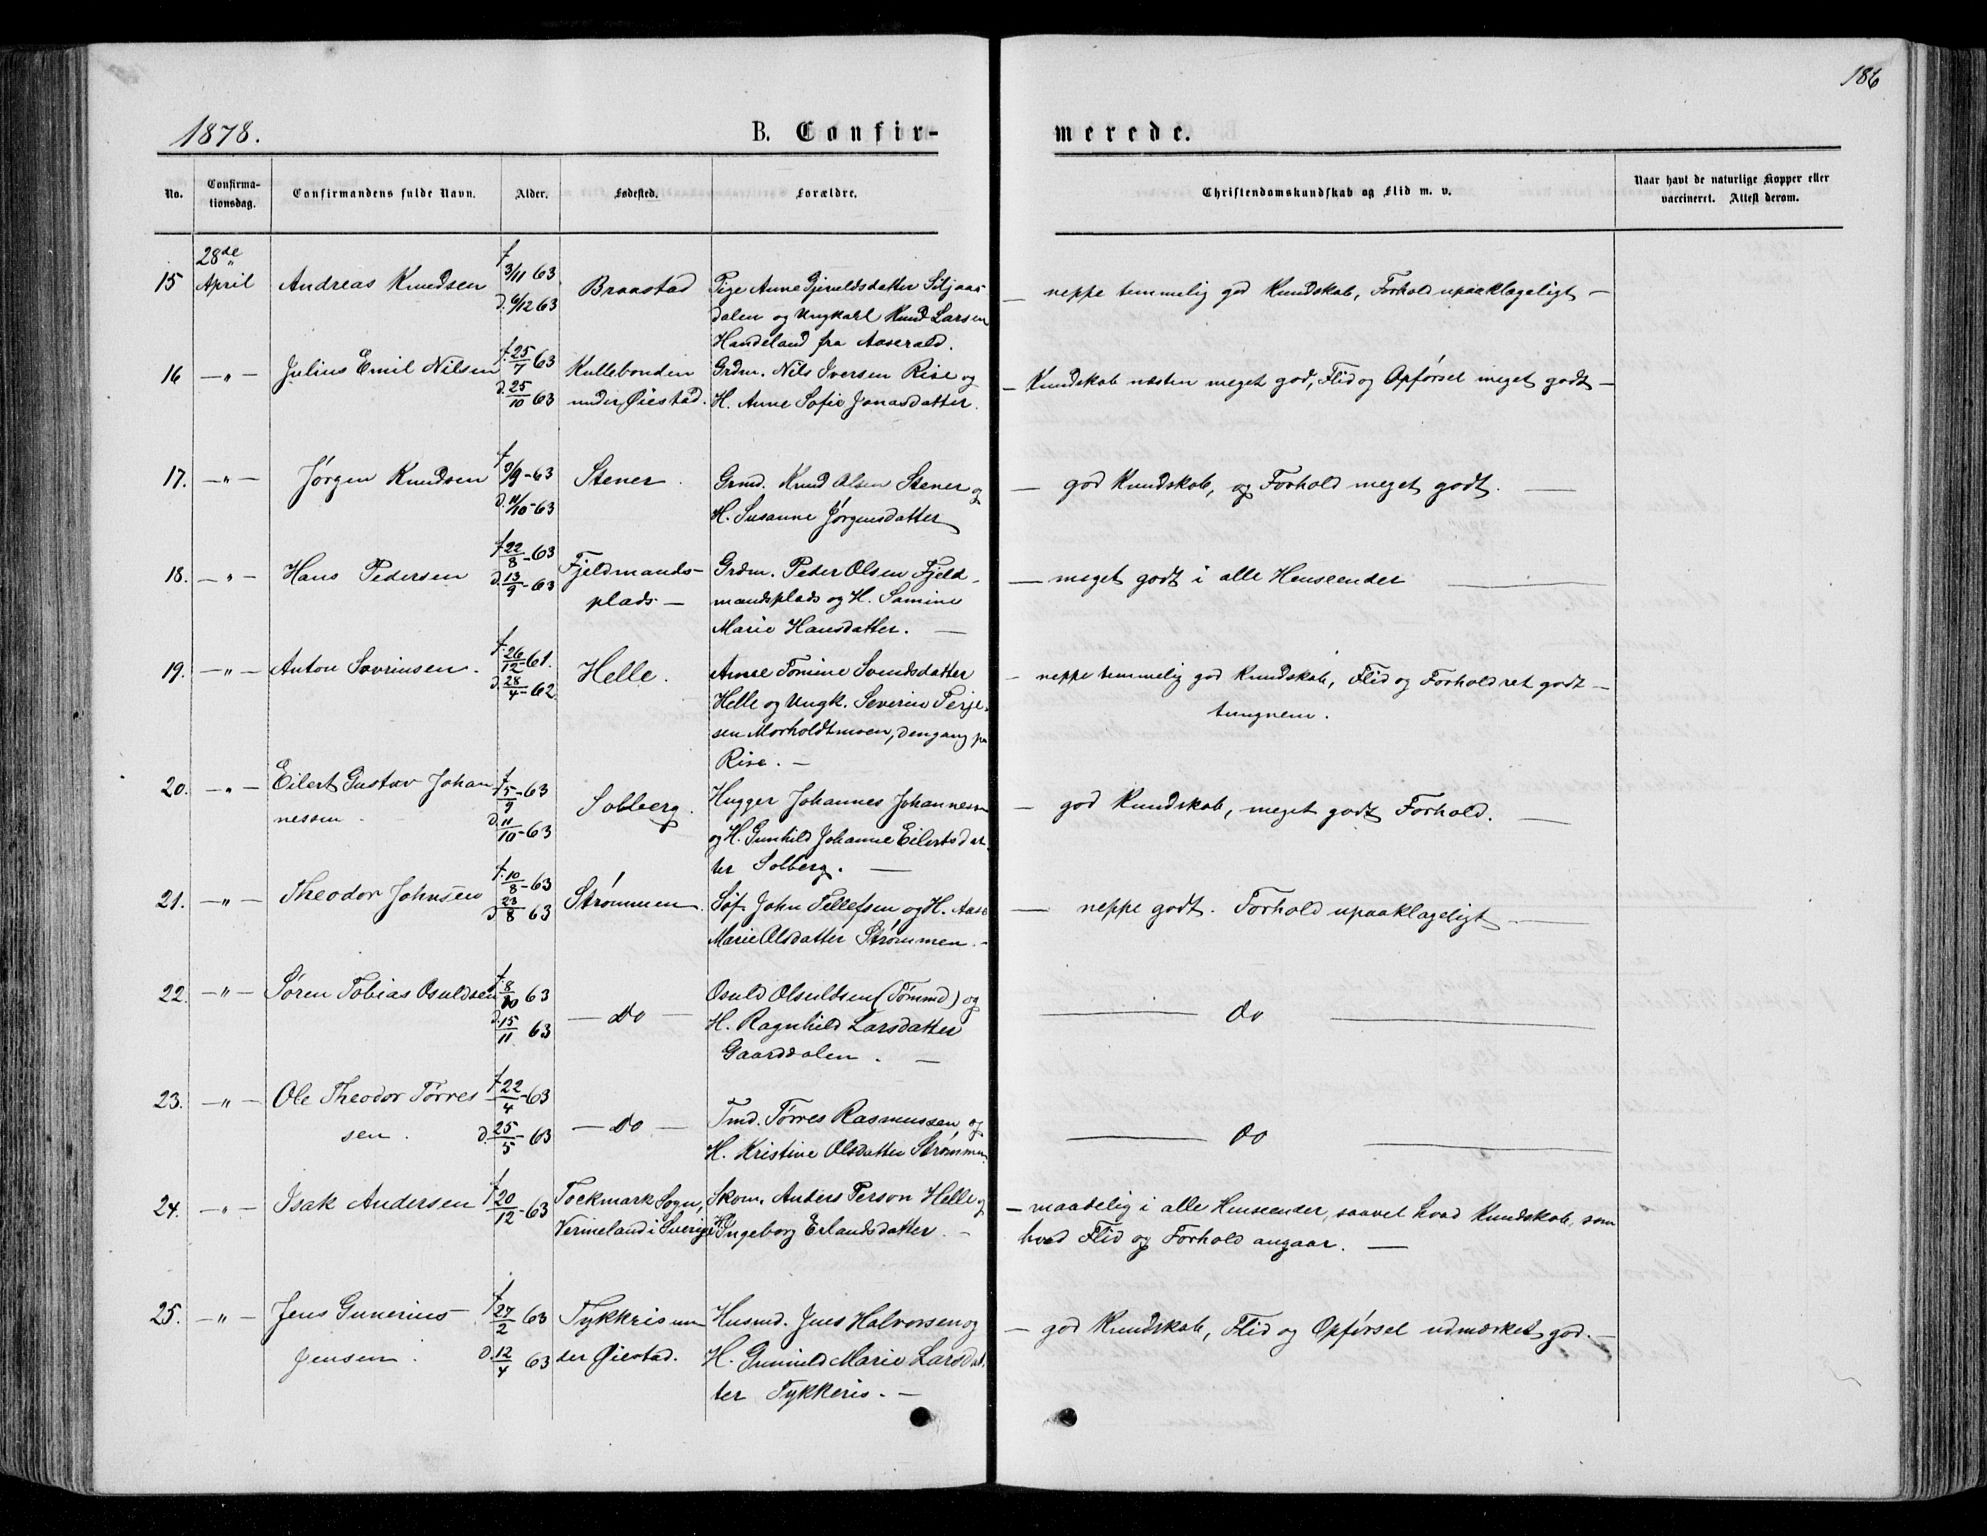 186
1878.
B. Confir-
merede.
No.
Confirma-
tionsdag.
Confirmandens fulde Navn.
Alder.
Fødested.
Forældre.
Christendomskundskab og Flid m. v.
Naar havt de naturlige Kopper eller
vaccineret. Attest derom.
28de
15 April Andreas Knudsen f 3/11 63 d. 6/12 63 Braastad
Pige Anne Gjeruldsdatter Siljaas
dalen og Ungkarl Knud Larsen
Handeland fra Aaserald.
— neppe temmelig god Kundskab, Forhold upaaklageligt —
16 —"— Julius Emil Nilsen f. 25/7 63 d. 25/10 63 Kullebonden
under Øiestad.
Grdm. Nils Iversen Rise og
H. Anne Sofie Jonasdatter.
— Kundskab næsten meget god, Flid og Opførsel meget godt —
17. —"— Jørgen Knudsen f 3/9-63 d. 11/10-63 Stener.
Grmd. Knud Olsen Stener og
H. Susanne Jørgensdatter
— god Kundskab, og Forhold meget godt. —
18. —"— Hans Pedersen f 22/8-63 d. 13/9-63 Fjeldmands-
plads —
Grdm. Peder Olsen Fjeld-
mandsplads og H. Samine
Marie Hansdatter. —
— meget godt i alle Henseender —
19. —"— Anton Sovrinsen. f. 26/12-61. d. 28/4-62 Helle.
Anne Tomine Svendsdatter
Helle og Ungk. Severin Terje-
sen Morholdtmoen, dengang paa
Rise. —
— neppe temmelig god Kundskab, Flid og Forhold ret godt —
tungnem.
20. —"— Eilert Gustav Johan
nessen. f 5/9-63 d. 11/10-63 Solberg.
Hugger Johannes Johannessen
og H. Gunhild Johanne Eilertsdat-
ter Solberg. —
— god Kundskab, meget godt Forhold. —
21. —"— Theodor Johnsen f. 10/8-63 d 23/8 63 Strømmen
Søf. John Tellefsen og H. Aase
Marie Olsdatter Strømmen. —
— neppe godt. Forhold upaaklageligt —
22. —"— Søren Tobias Osuldsen f. 8/10 63 d. 15/11 63 — do —
Osuld Olsuldsen (Tømmd) og
H. Ragnhild Larsdatter
Gaarddalen. —
— do —
23. —"— Ole Theodor Tørres
sen. f 22/4-63 d. 25/5-63 — do —
Tmd. Tørres Rasmussen og
H. Kristine Olsdatter Strømmen
— do —
24. —"— Isak Andersen f 20/12-63 Tockmark Sogn,
Vermeland i Sverige
Skom. Anders Person Helle og
H. Ingeborg Erlandsdatter. —
— maadelig i alle Henseender, saavel hvad Kundskab, som
hvad Flid og Forhold angaar. —
25. —"— Jens Gunerius
Jensen. f 27/2 63 d. 12/4 63 Tykkris un
der Øiestad.
Husmd. Jens Halvorsen og
H. Gunnild Marie Larsdat-
ter Tykkeris. —
— god Kundskab, Flid og Opførsel udmærket god. —